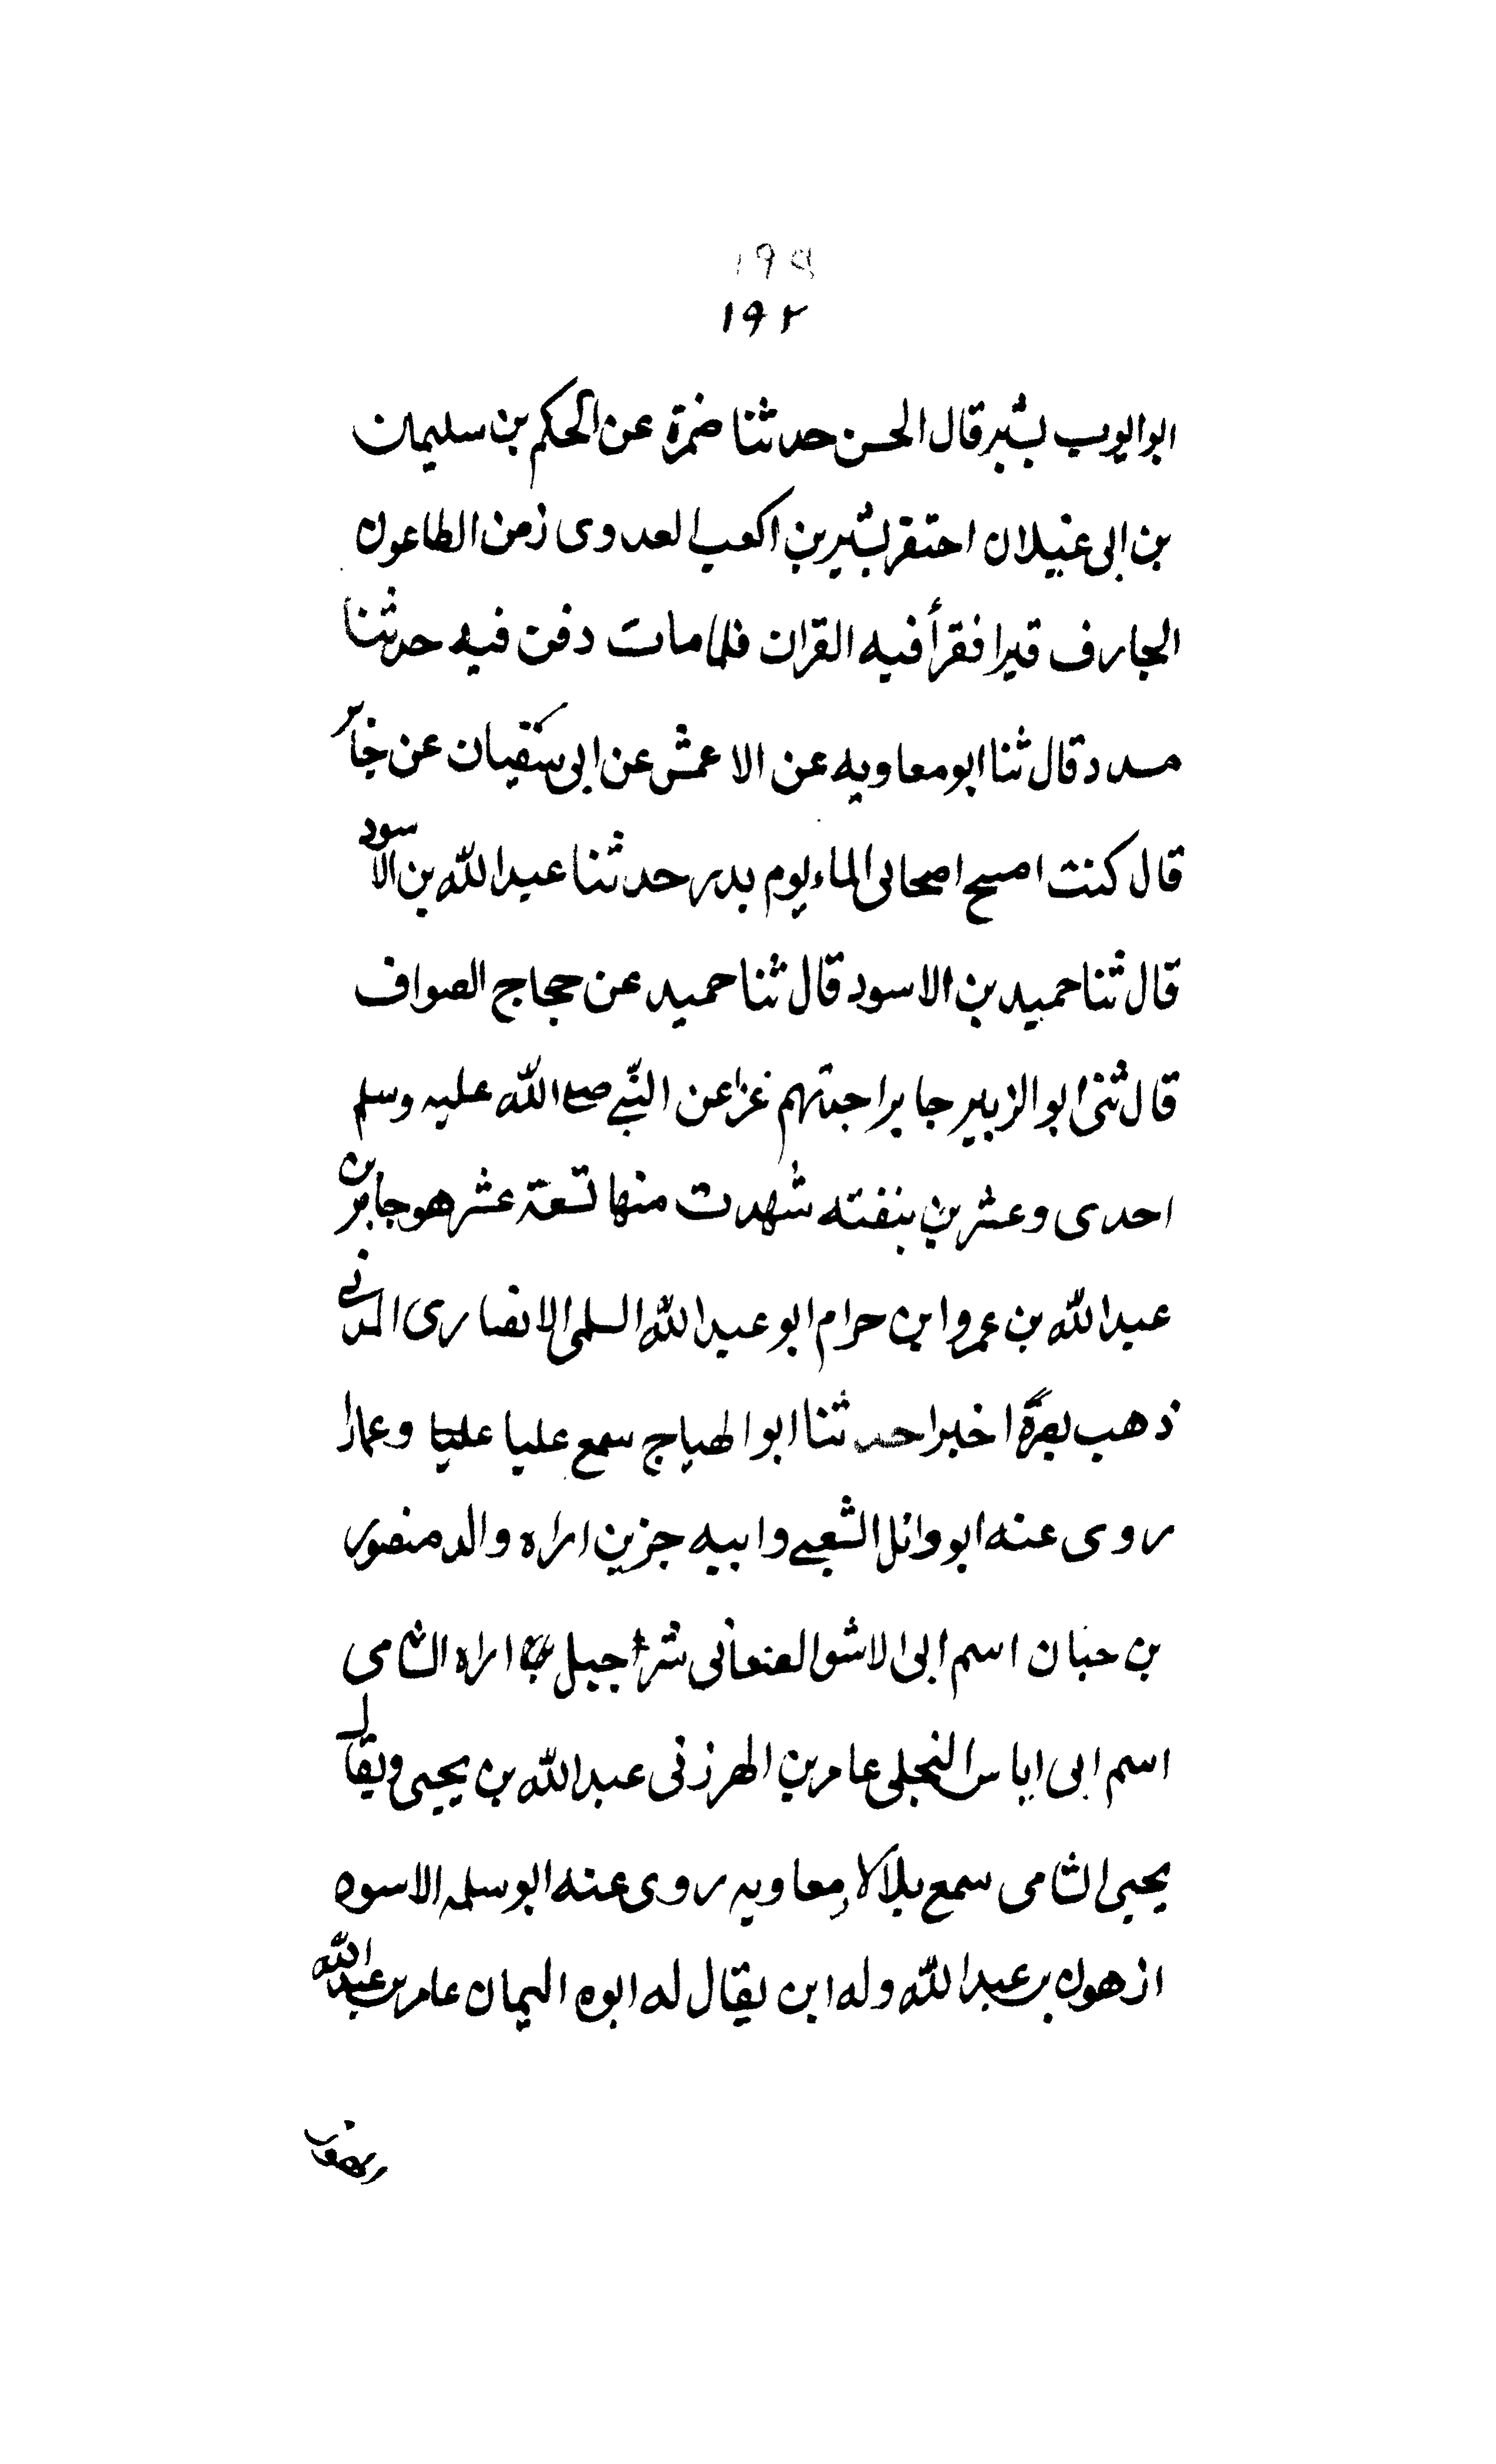 ۱۹۵
۱۹۲
ابوايوب بشير قال الحسن حدثنا ضمرة عن الحكم بن سليمان
بن ابى غيلان احتفر بشير بن اكعب العدوى زمن الطاعون
الجارف قبرا فقرأ فيه القران فلما مات دفن فيه حدثنا
مسدد قال ثنا ابو معاويه عن الاعمش عن ابى سفيان عن جابر
قال كنت امسح اصحابى الماء يوم بدر حدثنا عبدالله بن الاسود
قال ثنا حميد بن الاسود قال ثنا حميد عن حجاج الصواف
قال ثنى ابو الزبير جابرا حدثهم غزا عن النبي صلى الله عليه وسلم
احدى وعشرين بنفته شهدت منها تسعة عشر هو جابر بن
عبدالله بن عمرو ابن حرام ابو عبدالله السلمى الانصارى المدنى
ذهب بصره اخيرا حدثنا ابو الهياج سمع عليا عليا وعمارا
روى عنه ابو وائل الشعبي وابيه جزين اراه والد منصور
بن حبان اسم ابى الاشو الصنعانى شراحبيل اراه الشامى
اسم ابى اياس النجلى عامر بن الهرزنى عبدالله بن يحيى ويقال
يحيى الشامى سمع بلالا ومعاويه روى عنه ابو سلمه الاسوه
ازهون بن عبدالله وله ابن يقال له ابوه اليمان عامر بن عبدالله